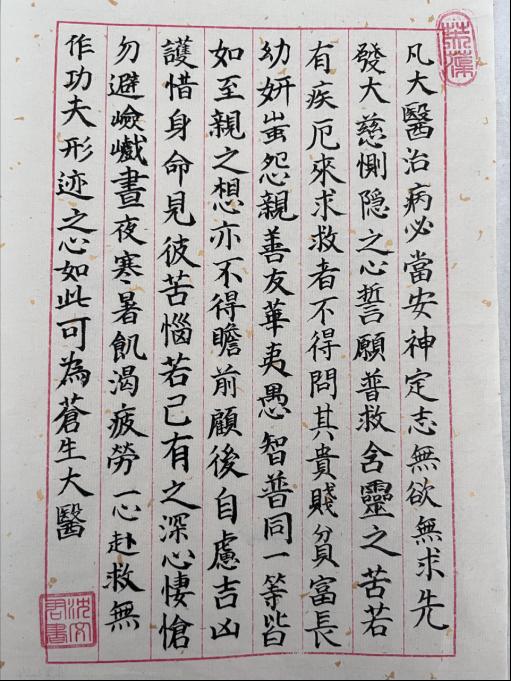 凡大醫治病必當安神定志無欲無求先
發大慈惻隐之心誓願普救含靈之苦若
有疾厄來求救者不得問其貴賤貧富長
幼妍蚩怨親善友華夷愚智普同一等皆
如至親之想亦不得瞻前顧後自慮吉凶
護惜身命見彼苦惱若己有之深心悽愴
勿避嶮巇晝夜寒暑飢渴疲勞一心赴救無
作功夫形迹之心如此可為蒼生大醫